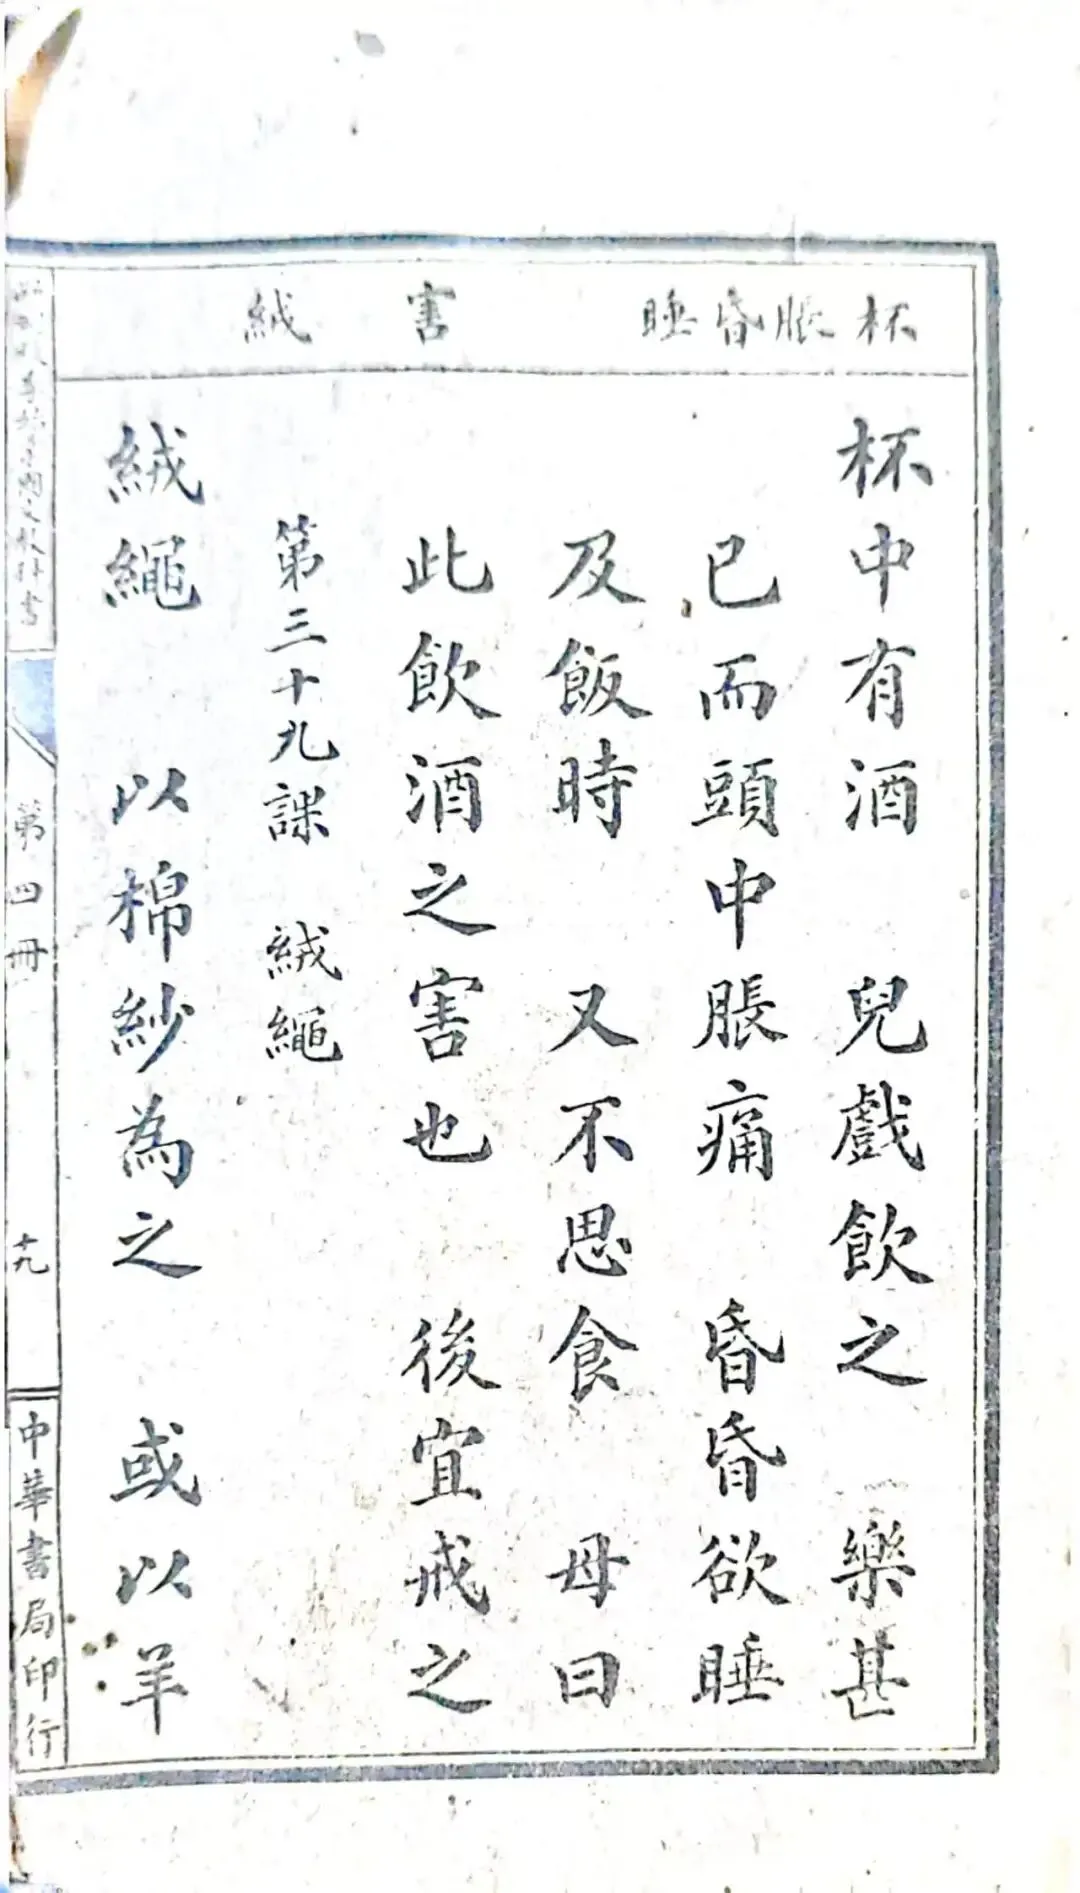 杯脹昏睡 害 絨
杯中有酒 兒戲飲之 樂甚
已而頭中脹痛 昏昏欲睡
及飯時 又不思食 母曰
此飲酒之害也 後宜戒之
第三十九課 絨繩
絨繩 以棉紗為之 或以羊
國文教科書 第四冊 十九 中華書局印行